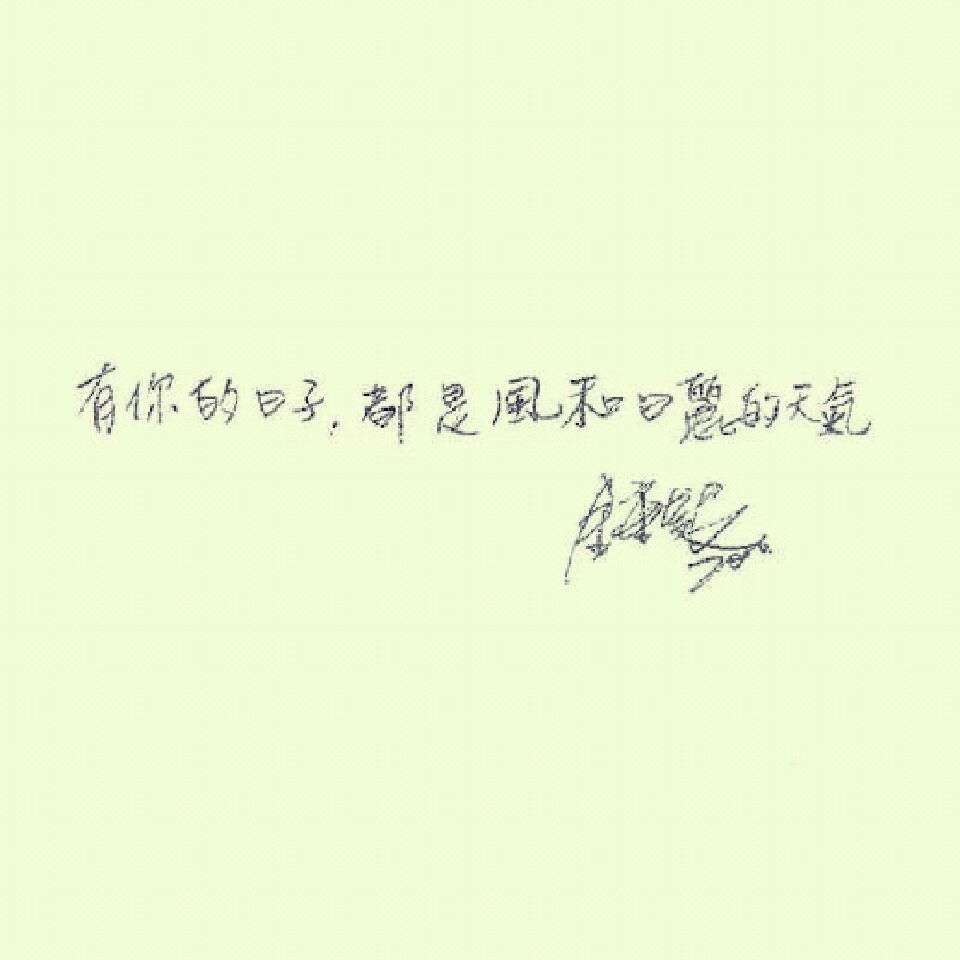 有你的日子,都是風和日麗的天氣